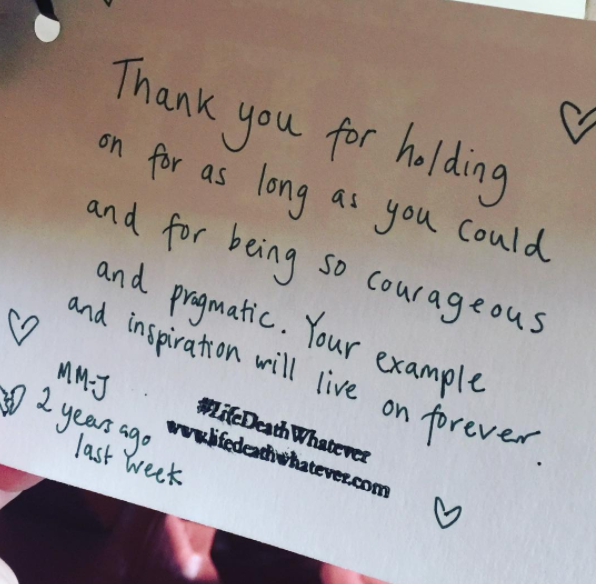 Thank you for holding
on for as long as you could
and for being so courageous
and pragmatic. Your example
and inspiration will live on forever.
MM-J
2 years ago
last week
#LifeDeathWhatever
www.lifedeathwhatever.com